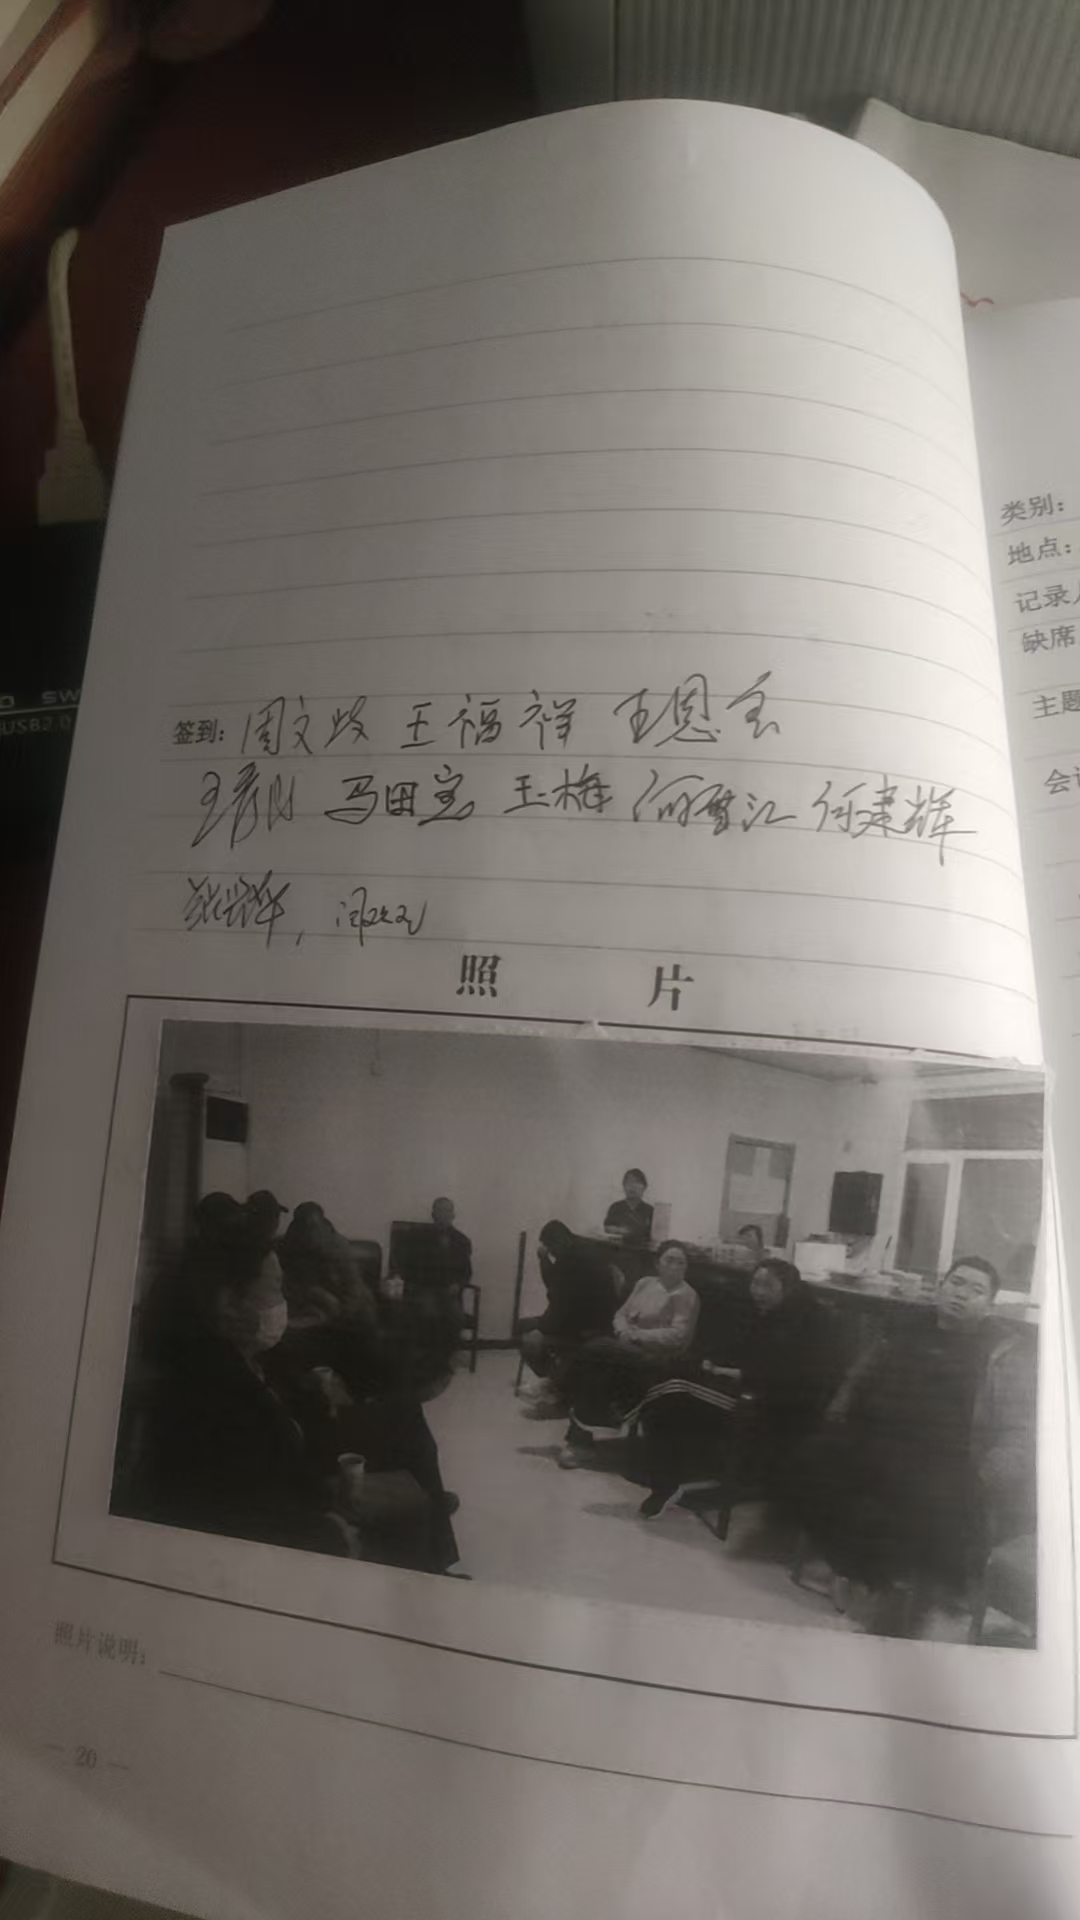 SW
USB2.0
签到: 周文 王福祥 王恩宝
王 马田宝 王梅 何 江 何建辉
张兴华,
照 片
照片说明:
— 20 —
类别:
地点:
记录人
缺席
主题
会议